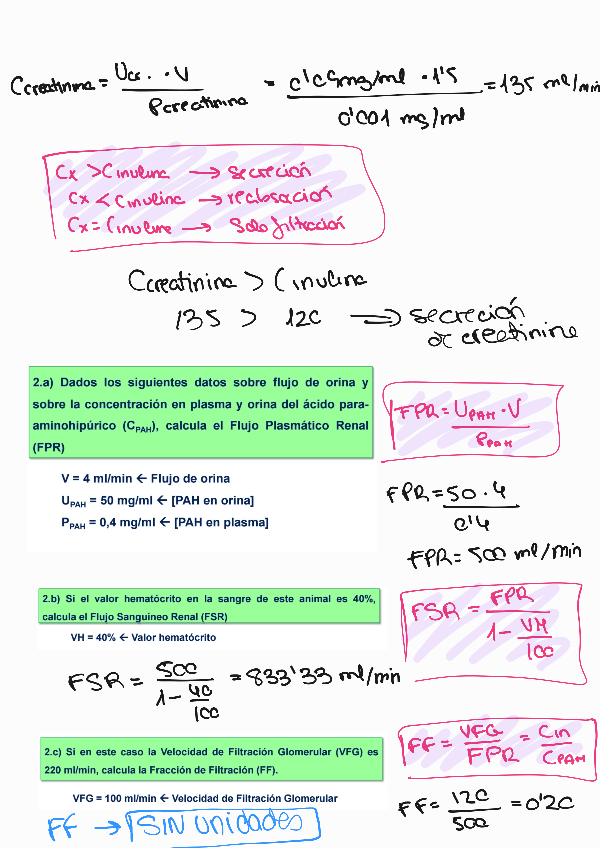 Ccreatinina = Ucr. · V / Pcreatinina = 0'09mg/ml · 1'5 / 0'001 mg/ml = 135 ml/min
Cx > Cinulina → secreción
Cx < Cinulina → reabsoción
Cx = Cinulina → Solo filtración
Ccreatinina > Cinulina
135 > 120 ⟹ secreción
de creatinina
2.a) Dados los siguientes datos sobre flujo de orina y
sobre la concentración en plasma y orina del ácido para-
aminohipúrico (CPAH), calcula el Flujo Plasmático Renal
(FPR)
FPR = UPAH · V / PPAH
V = 4 ml/min ← Flujo de orina
UPAH = 50 mg/ml ← [PAH en orina]
PPAH = 0,4 mg/ml ← [PAH en plasma]
FPR = 50 · 4 / 0'4
FPR = 500 ml/min
2.b) Si el valor hematócrito en la sangre de este animal es 40%,
calcula el Flujo Sanguíneo Renal (FSR)
VH = 40% ← Valor hematócrito
FSR = FPR / 1 - VH / 100
FSR = 500 / 1 - 40 / 100 = 833'33 ml/min
2.c) Si en este caso la Velocidad de Filtración Glomerular (VFG) es
220 ml/min, calcula la Fracción de Filtración (FF).
FF = VFG / FPR = Cin / CPAH
VFG = 100 ml/min ← Velocidad de Filtración Glomerular
FF = 120 / 500 = 0'20
FF → SIN unidades